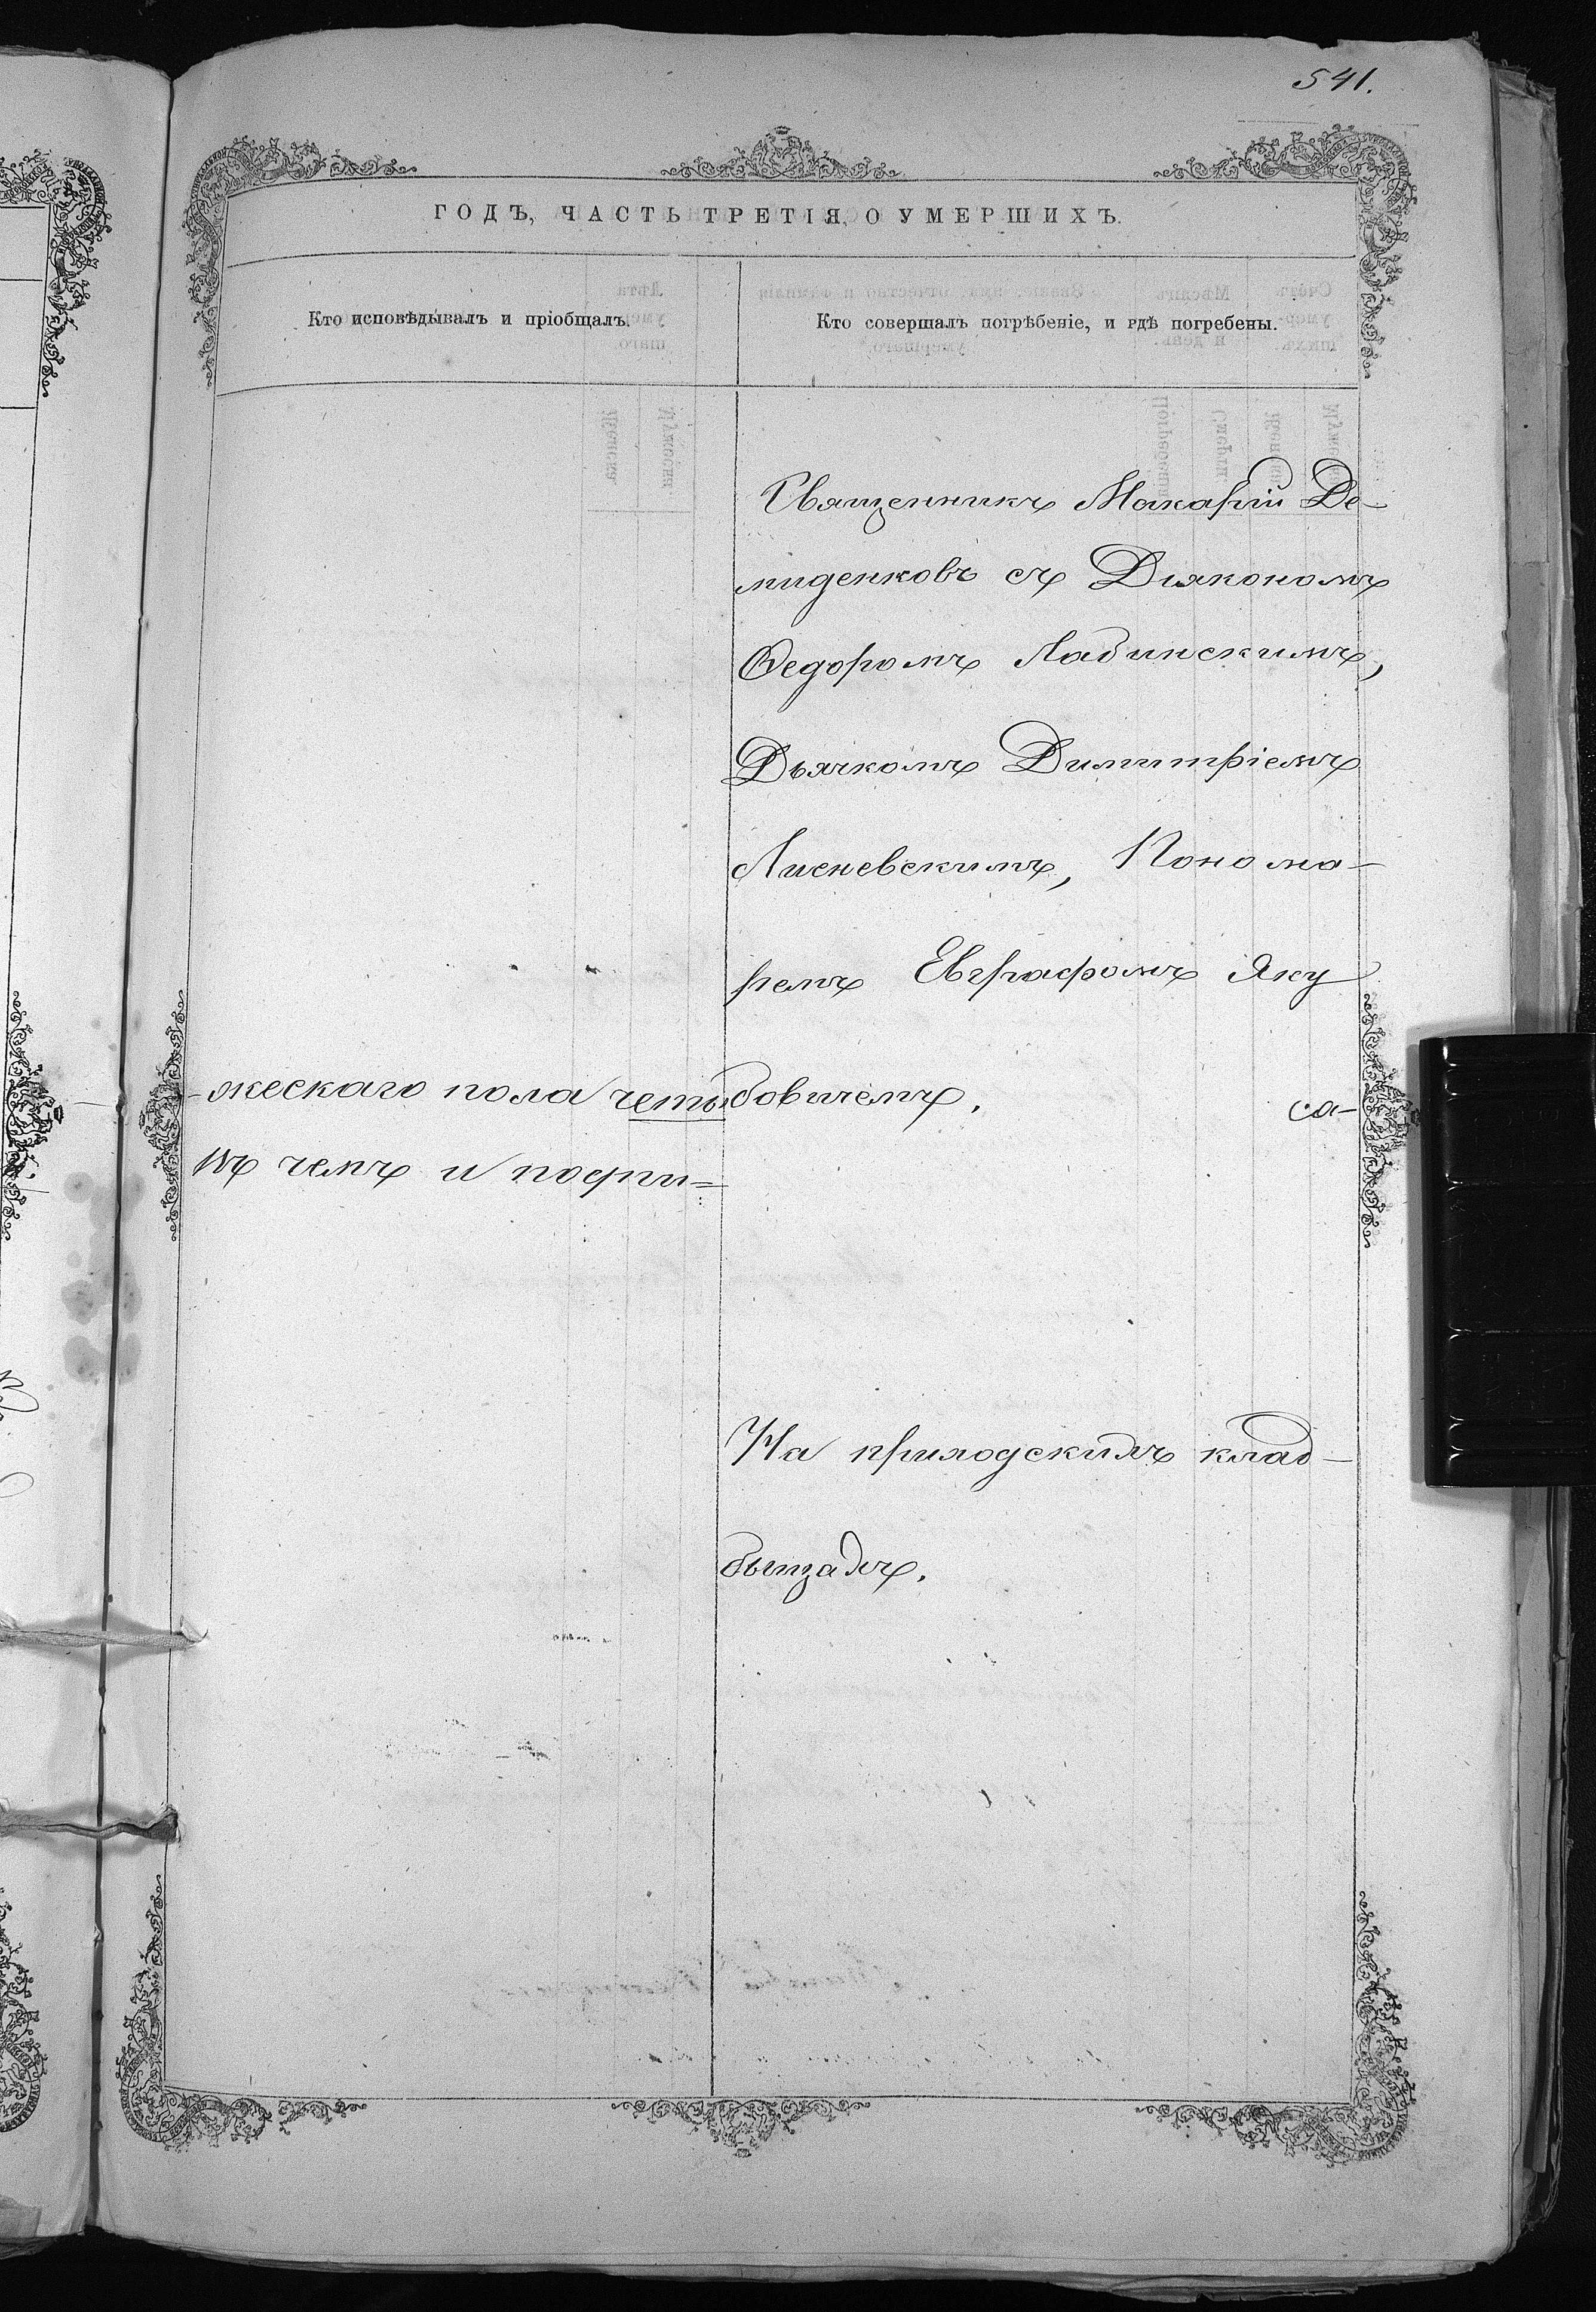 541.
ГОДЪ, ЧАСТЬ ТРЕТІЯ, О УМЕРШИХЪ.
Кто исповѣдывалъ и пріобщалъ.
Кто совершалъ погрѣбеніе, и гдѣ погребены.
Священникъ Макарій Де-
миденковъ съ Діякономъ
Ѳедоромъ Лабинскимъ,
Дьячкомъ Димитріемъ
Лисневскимъ, Понома-
ремъ Евграфомъ Яку
бовичемъ.
-жескаго пола четы
са-
въ чемъ и
На приходскихъ клад-
бищахъ.